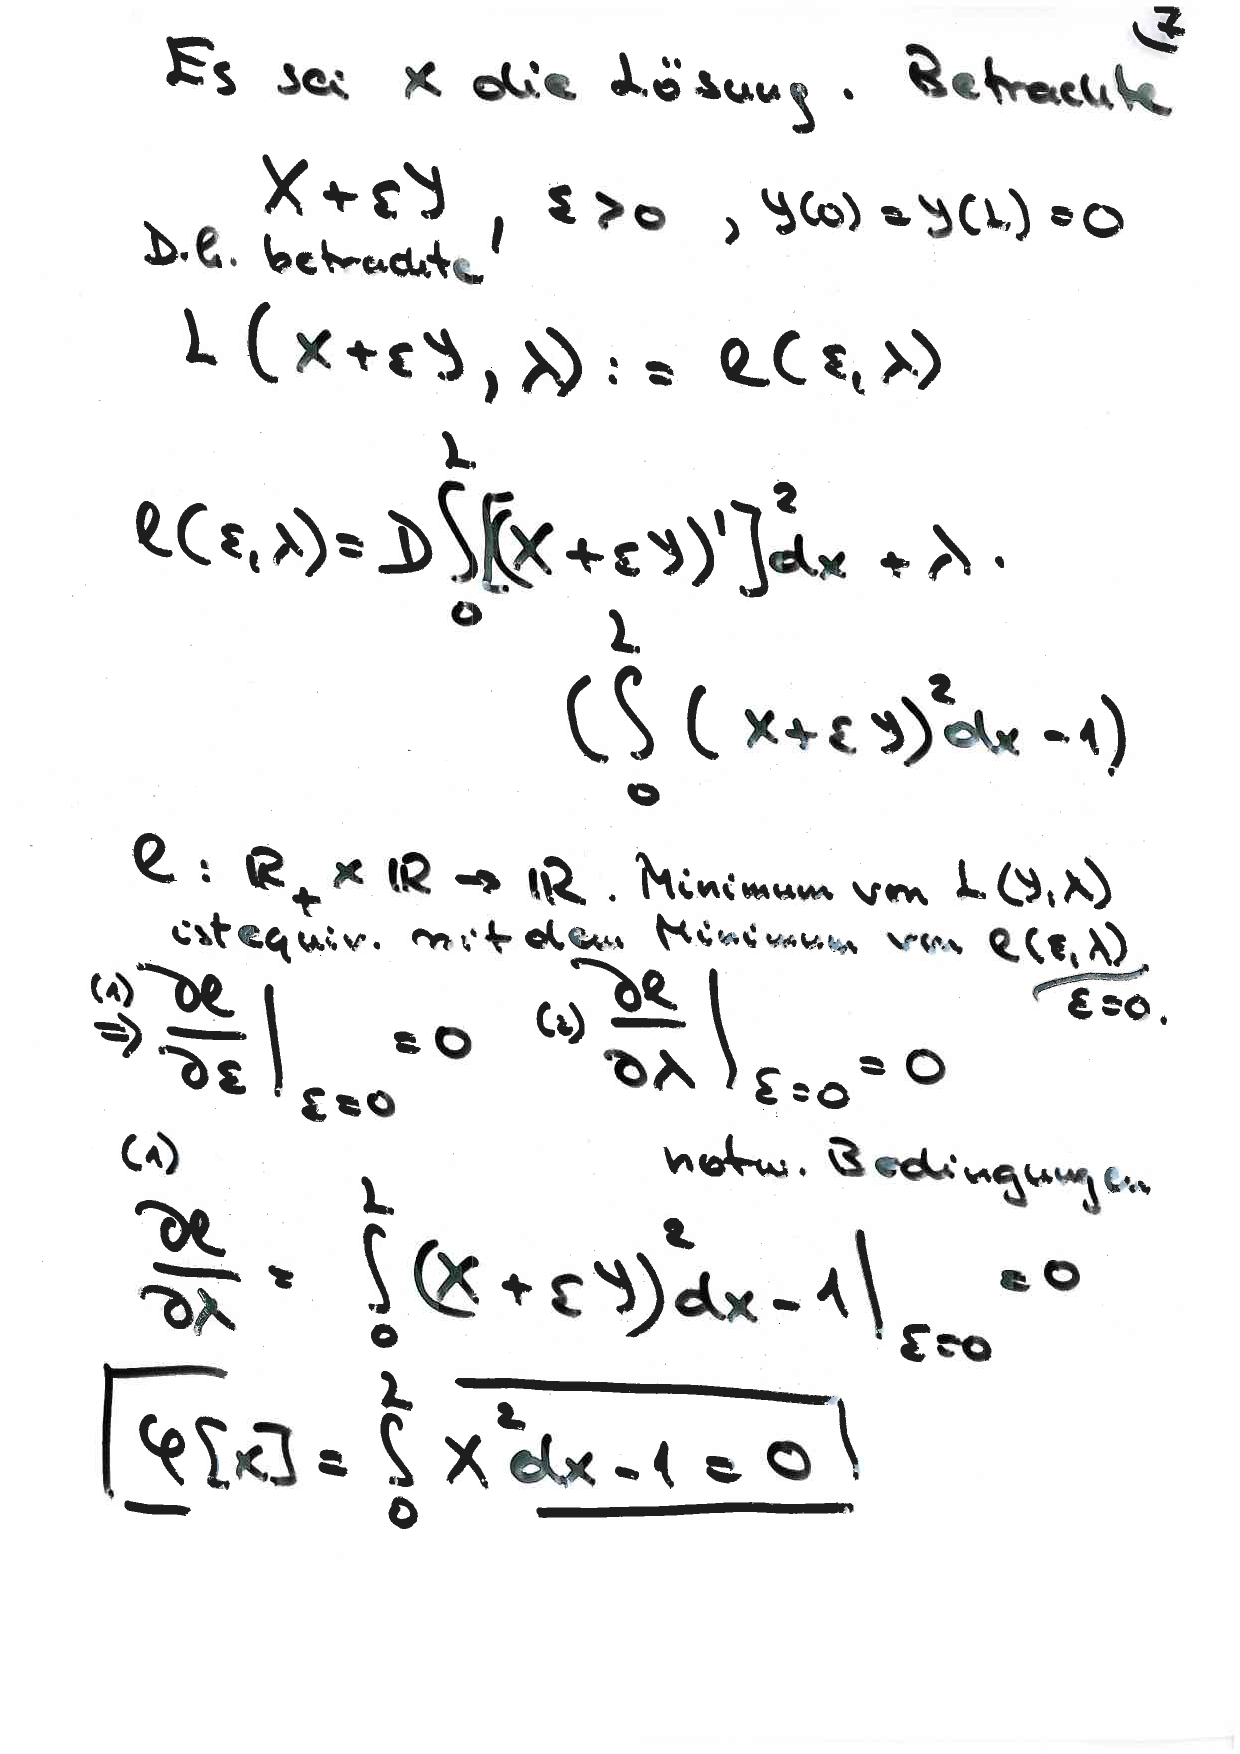 7
Es sei x die Lösung. Betrachte
X + εy, ε > 0, y(0) = y(L) = 0
D.h. betrachte
L(x + εy, λ) := ℓ(ε, λ)
ℓ(ε, λ) = D ∫₀ᴸ [(x + εy)']² dx + λ ·
(∫₀ᴸ (x + εy)² dx - 1)
ℓ : ℝ₊ × ℝ → ℝ. Minimum von L(y, λ)
ist equiv. mit dem Minimum von ℓ(ε, λ)
ε=0.
(1) ⇒ ∂ℓ/∂ε |_{ε=0} = 0 (2) ∂ℓ/∂λ |_{ε=0} = 0
(1) notw. Bedingungen
∂ℓ/∂λ = ∫₀ᴸ (X + εy)² dx - 1 |_{ε=0} = 0
φ[x] = ∫₀ᴸ X² dx - 1 = 0